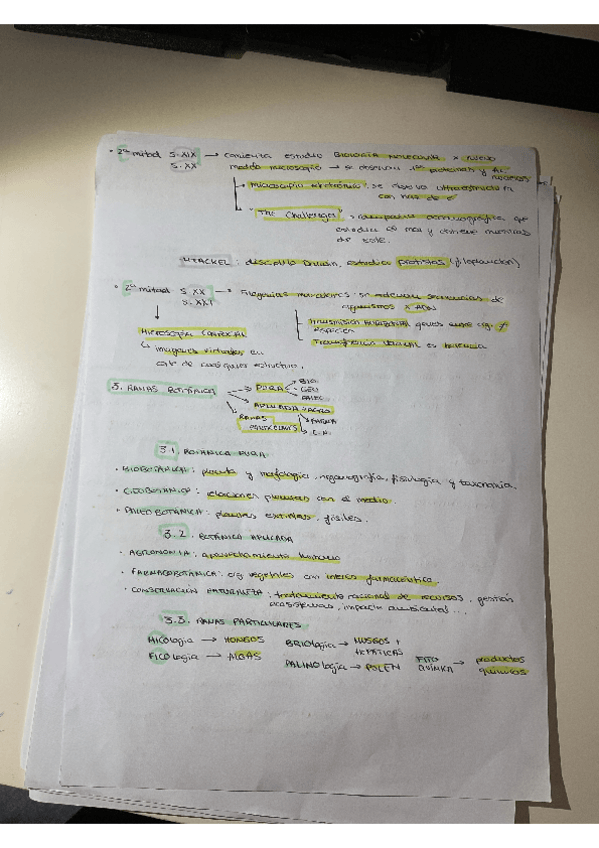 · 2ª mitad S.XIX → comienza estudio Biología molecular x nuevo
S.XX modelo microscopio → se observan 1as proteínas y Ác. nucleicos
Microscopio electrónico, se observa ultraestructura
con haz de e⁻
"The Challenger", campaña oceanográfica que
estudia el mar y obtiene muestras
de
HAECKEL: discípulo Darwin, estudia protistas (fitoplancton)
· 2ª mitad S.XX → Filogenias moleculares: se ordenan secuencias de
S.XXI organismos x ADN
Transmisión horizontal genes entre org ≠
especies
Transmisión vertical es herencia
MICROSCOPÍA CONFOCAL
↳ imágenes virtuales, en
corte de cualquier estructura.
3. RAMAS BOTÁNICA
PURA
BIO.
GEO.
PALEO.
APLICADA
AGRO
FARMA
C.N.
RAMAS
PARTICULARES
3.1. BOTÁNICA PURA
· BIOBOTÁNICA: planta y morfología, organografía, fisiología y taxonomía.
· GEOBOTÁNICA: relaciones plantas con el medio.
· PALEOBOTÁNICA: plantas extintas, fósiles.
3.2. BOTÁNICA APLICADA
· AGRONOMÍA: aprovechamiento humano
· FARMACOBOTÁNICA: org vegetales con interés farmacéutico.
· CONSERVACIÓN NATURALEZA: tratamiento racional de recursos, gestión
ecosistemas, impacto ambiental...
3.3. RAMAS PARTICULARES
MICOlogía → HONGOS BRIOlogía → MUSGOS +
HEPÁTICAS
FICOlogía → ALGAS PALINOlogía → POLEN FITO QUÍMICA → productos
químicos